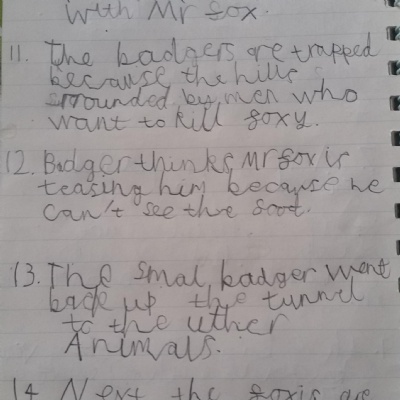 with Mr fox.
11. The badgers are trapped
because the hills
srrounded by men who
want to kill foxy.
12. Badger thinks Mr fox is
teasing him because he
can't see the food.
13. The smal badger went
back up the tunnel
to the uther
Animals.
14. Next the foxis are